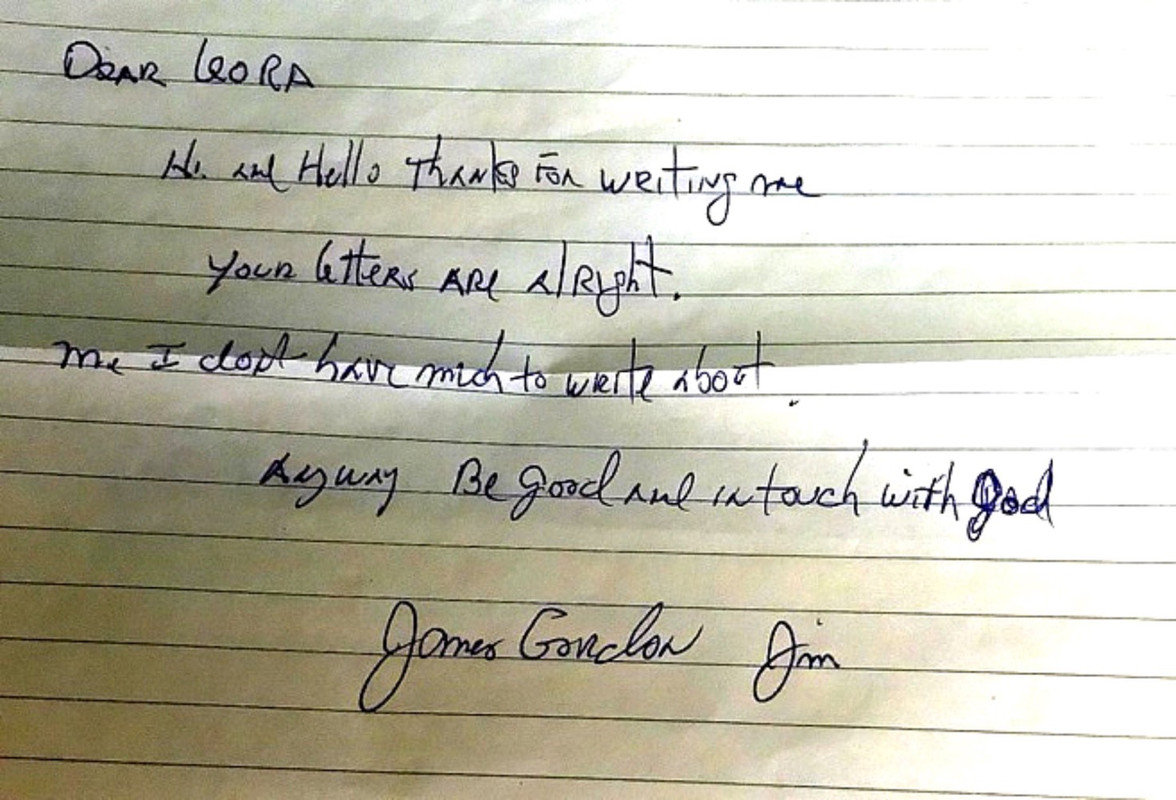 Dear Leora
Hi. and Hello Thanks For writing me
your letters are alright.
Me I dont have much to write about.
Anyway Be good and in touch with god
James Gordon Jim